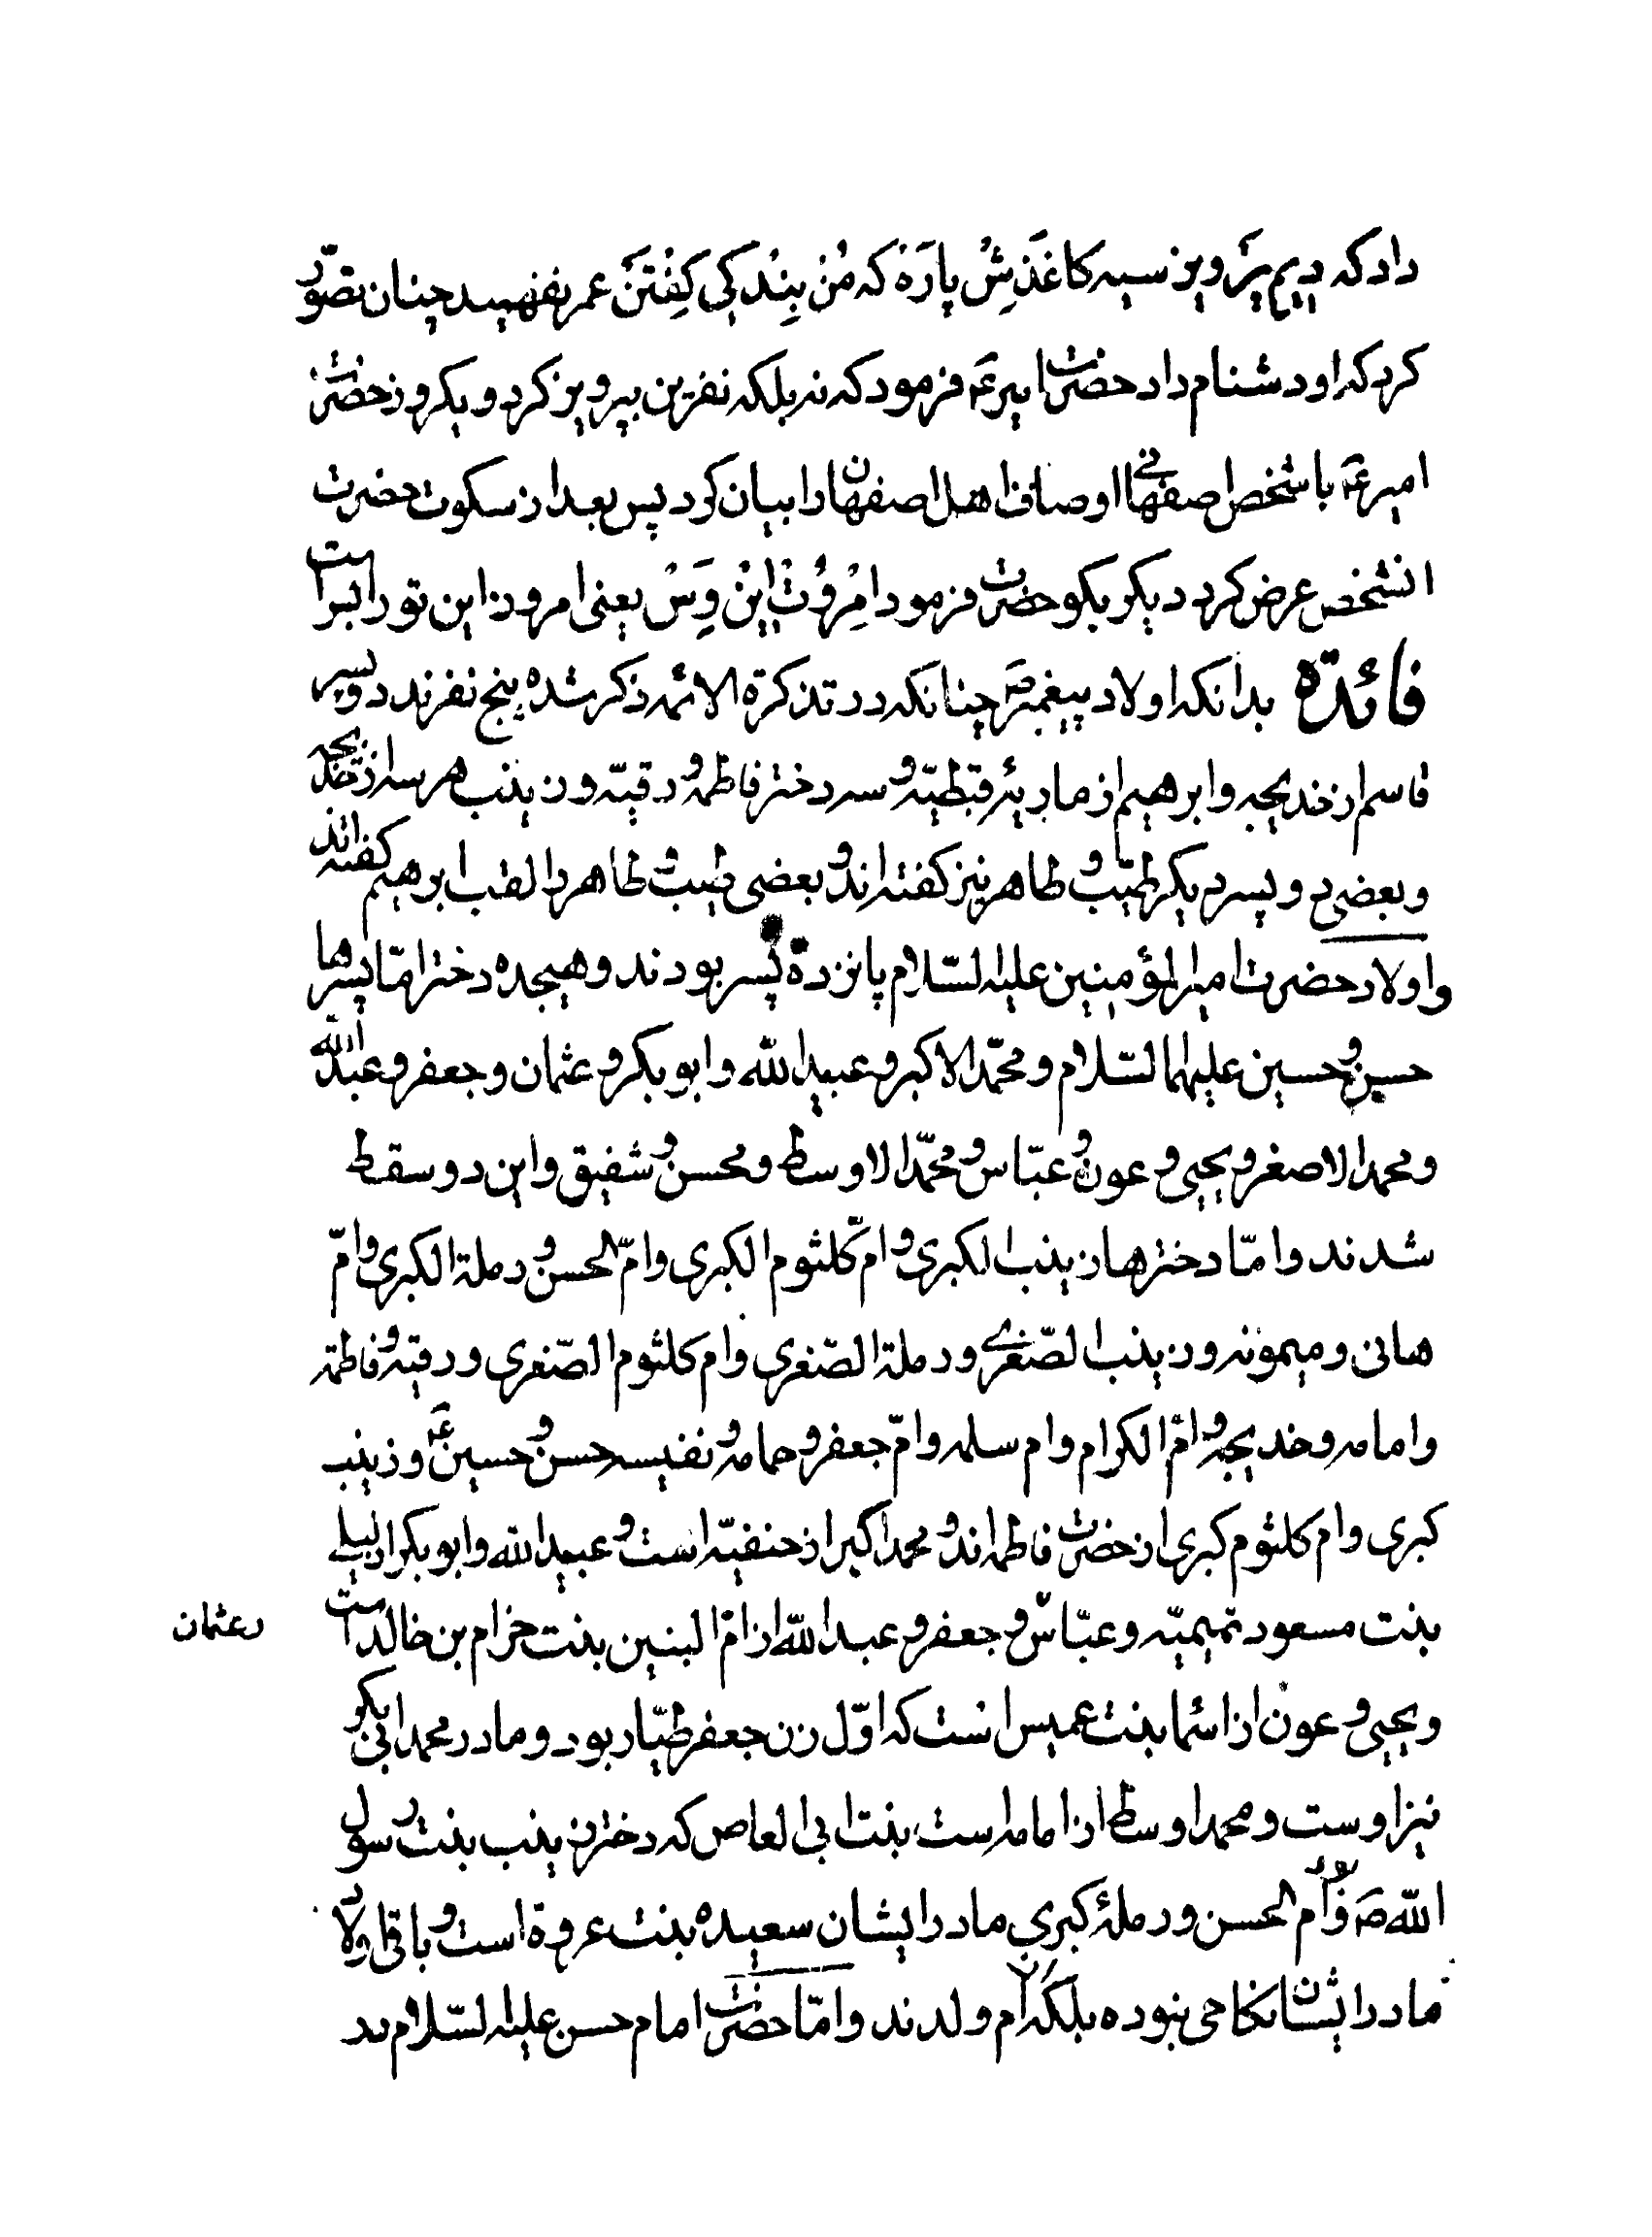 داد که دیم پَرویز سیه کاغذِشْ پارَه که مُنْ بِنُدکی کِفْتَنْ عمر نفهمید چنان تصوّر
کرد که او دشنام داد حضرت امیر عَ فرمود که نه بلکه نفرین بپرویز کرد و یکروز حضرت
امیر عَ با شخص اصفهانی اوصاف اهل اصفهان را بیان کرد پس بعد از سکوت حضرت
انشخص عرض کرد دیکر بکو حضرت فرمود اِمْرُوْتْ اِیْنْ وَسْ یعنی امروز این تو را بس است
فائدة بدانکه اولاد پیغمبر صَ چنانکه در تذکرة الائمه ذکر شده پنج نفرند دو پسر
قاسم از خدیجه و ابرهیم از ماریهٔ قبطیّه و سه دختر فاطمه و رقیّه و زینب هر سه از خدیجه
و بعضی دو پسر دیکر طیّب و طاهر نیز کفته‌اند و بعضی طیب و طاهر را لقب ابرهیم کفته‌اند
و اولاد حضرت امیرالمؤمنین علیه السّلام پانزده پسر بودند و هیجده دختر امّا پسرها
حسن و حسین علیهما السّلام و محمّد الاکبر و عبیدالله و ابوبکر و عثمان و جعفر و عبدالله
و محمد الاصغر و یحیی و عون و عبّاس و محمّد الاوسط و محسن و شفیق و این دو سقط
شدند و امّا دخترها زینب الکبری و ام کلثوم الکبری و امّ الحسن و رملة الکبری و امّ
هانی و میمونه و زینب الصّغری و رملة الصّغری و ام کلثوم الصّغری و رقیّه و فاطمه
و امامه و خدیجه و امّ الکرام و ام سلمه و امّ جعفر و حمامه و نفیسه حسن و حسین عَ و زینب
کبری و ام کلثوم کبری از حضرت فاطمه‌اند و محمد اکبر از حنفیّه است و عبیدالله و ابوبکر از لیلی
بنت مسعود تمیمیّه و عبّاس و جعفر و عبدالله از امّ البنین بنت حزام بن خالد است
و عثمان
و یحیی و عون از اسما بنت عمیس است که اوّل زن جعفر طیّار بود و مادر محمد ابی بکر
نیز اوست و محمد اوسط از امامه است بنت ابی العاص که دختر زینب بنت رسول
الله صَ بود و ام الحسن و رملهٔ کبری مادر ایشان سعیده بنت عروة است و باقی اولاد
مادر ایشان نکاحی نبوده بلکه از ام ولدند و امّا حضرت امام حسن علیه السّلام بد